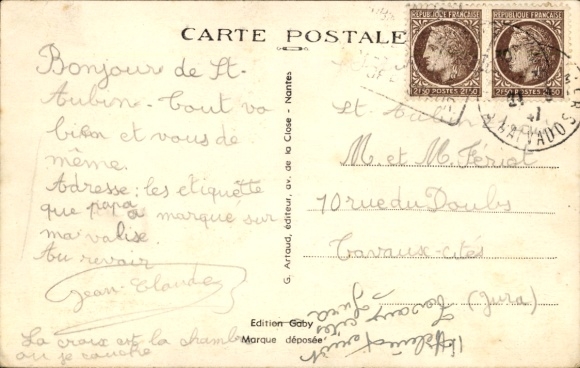 CARTE POSTALE
RÉPUBLIQUE FRANÇAISE
2F50 POSTES 2F50
RÉPUBLIQUE FRANÇAISE
2F50 POSTES 2F50
CALVADOS
Bonjour de St.
Aubin. Tout va
bien et vous de
même.
Adresse: les etiquêtte
que papa a marque sur
ma valise.
Au revoir
Jean-Claude
La croix est la chambre
ou je couche
G. Artaud, éditeur, av. de la Close - Nantes
Edition Gaby
Marque déposée
St. Aubin
M. et M. Fériot
10 rue du Doubs
Tavaux-cités
(Jura)
Tavaux cités
Jura